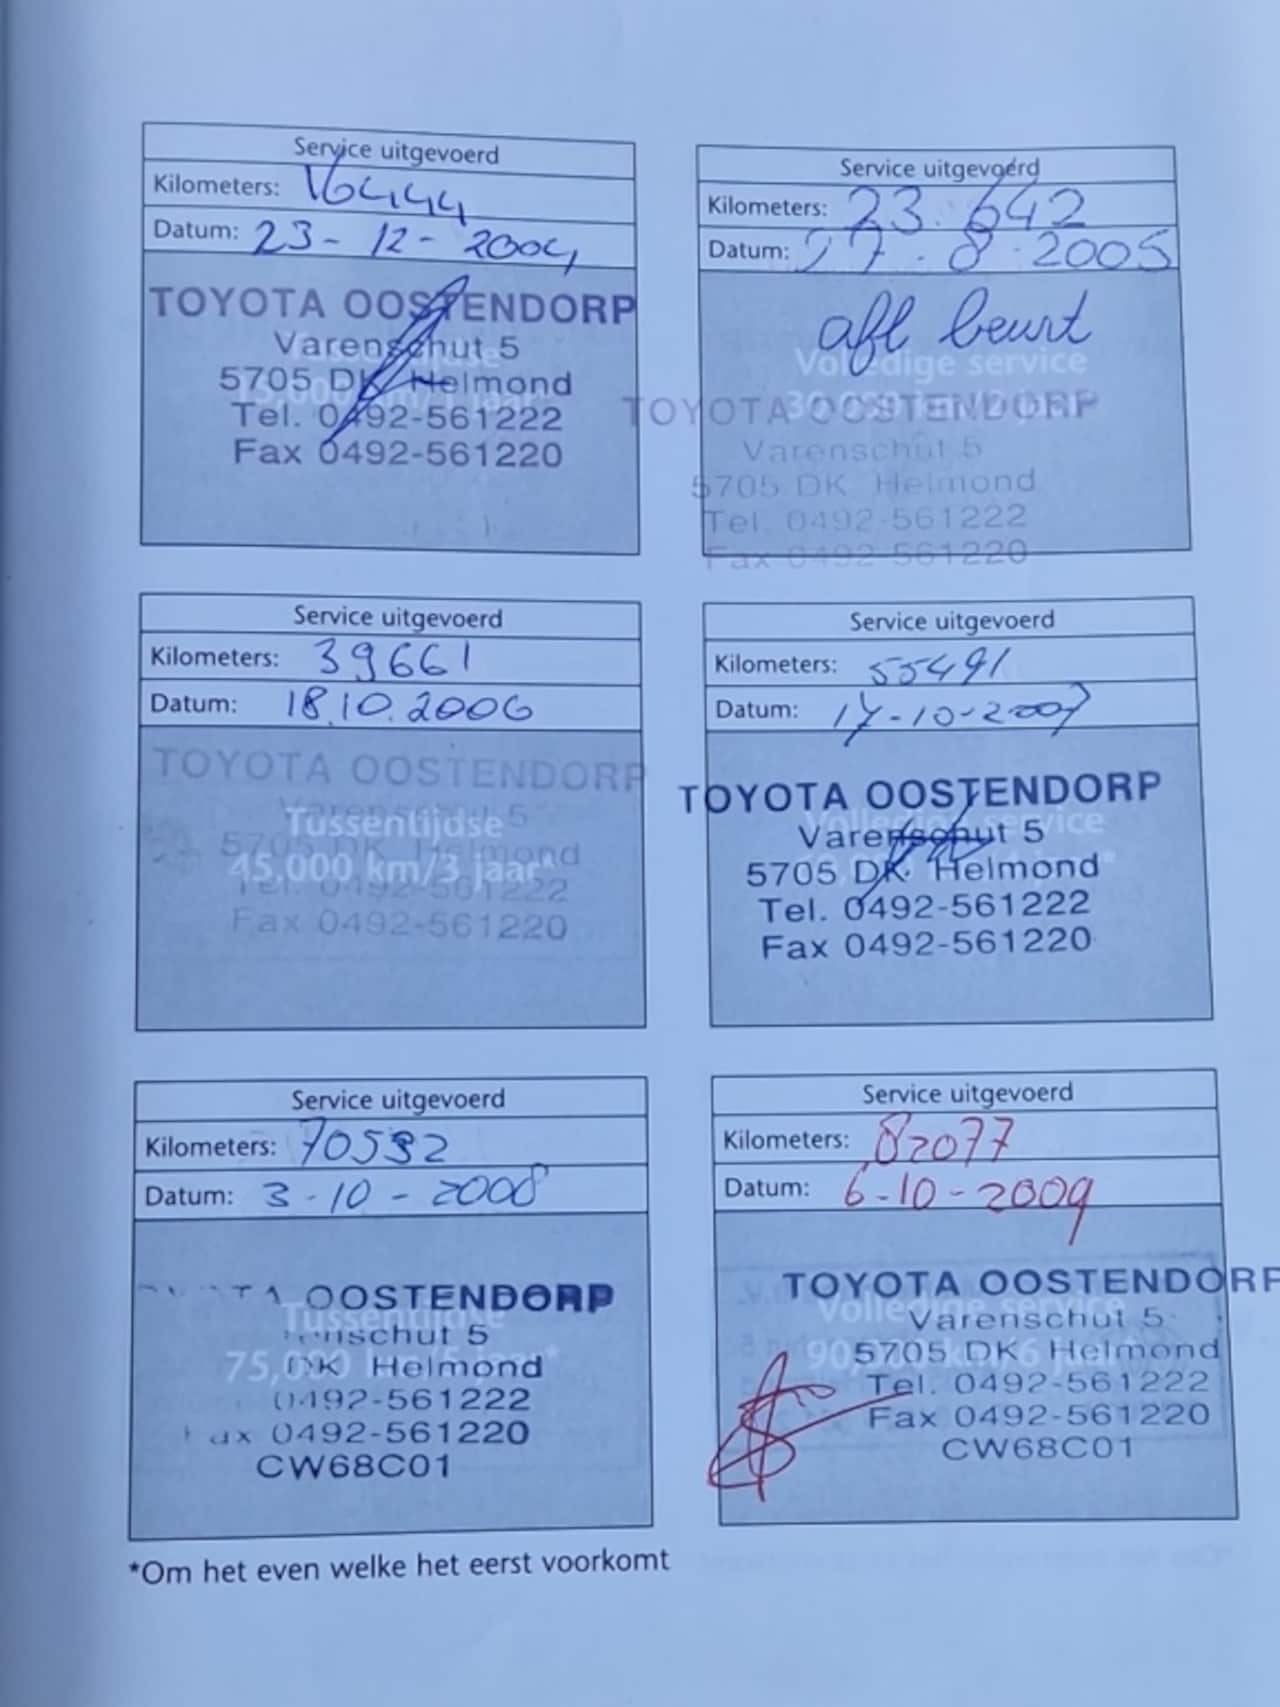 Service uitgevoerd
Kilometers: 16444
Datum: 23-12-2004
TOYOTA OOSTENDORP
Varenschut 5
5705 DK Helmond
Tel. 0492-561222
Fax 0492-561220
Service uitgevoerd
Kilometers: 23.642
Datum: 27.8.2005
afl beurt
Volledige service
TOYOTA OOSTENDORP
Varenschut 5
5705 DK Helmond
Tel. 0492-561222
Fax 0492-561220
Service uitgevoerd
Kilometers: 39661
Datum: 18.10.2006
TOYOTA OOSTENDORP
Varenschut 5
Tussentijdse
5705 DK Helmond
45,000 km/3 jaar*
Tel. 0492-561222
Fax 0492-561220
Service uitgevoerd
Kilometers: 55491
Datum: 17-10-2007
TOYOTA OOSTENDORP
Volledige service
Varenschut 5
5705 DK Helmond
Tel. 0492-561222
Fax 0492-561220
Service uitgevoerd
Kilometers: 70532
Datum: 3-10-2008
OOSTENDORP
Tussentijdse
enschut 5
75,000 km/5 jaar*
DK Helmond
0492-561222
ax 0492-561220
CW68C01
Service uitgevoerd
Kilometers: 82077
Datum: 6-10-2009
TOYOTA OOSTENDORP
Volledige service
Varenschut 5
90,000 km/6 jaar*
5705 DK Helmond
Tel. 0492-561222
Fax 0492-561220
CW68C01
*Om het even welke het eerst voorkomt